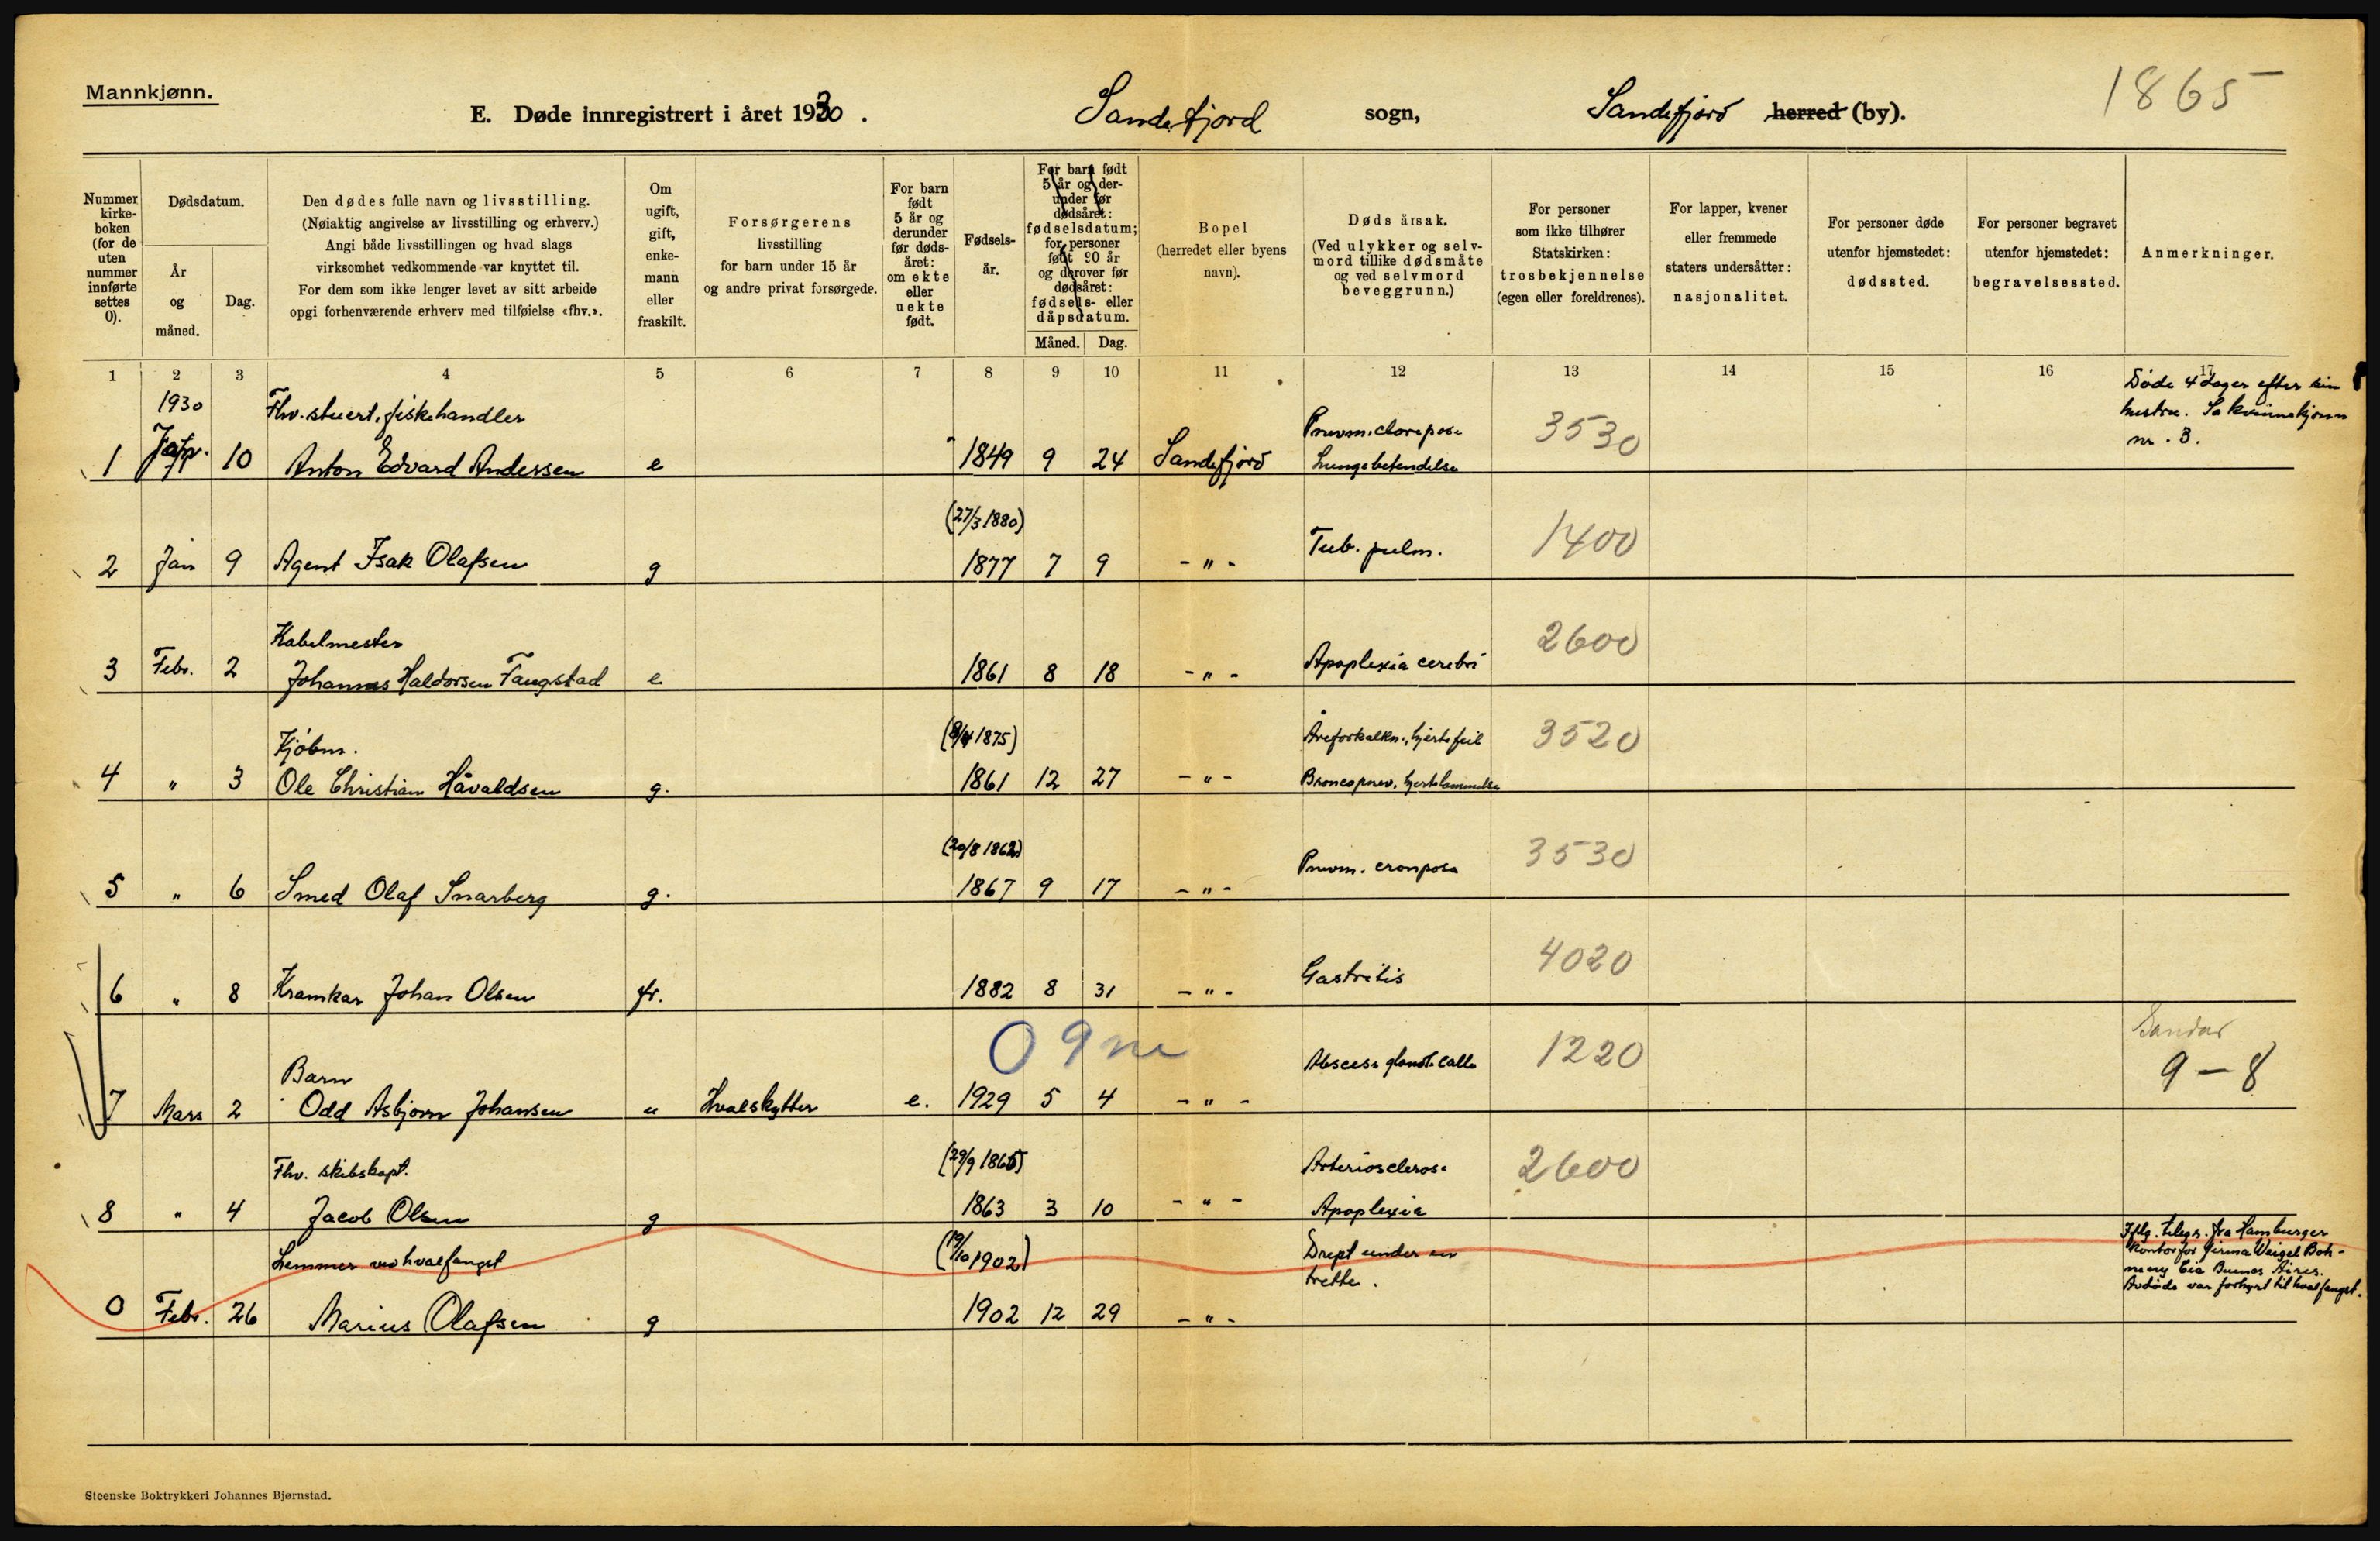 Mannkjønn.
1865
E. Døde innregistrert i året 1930. Sandefjord sogn, Sandefjord herred (by).
Nummer
kirke-
boken
(for de
uten
nummer
innførte
settes
0).
Dødsdatum.
År
og
måned.
Dag.
Den dødes fulle navn og livsstilling.
(Nøiaktig angivelse av livsstilling og erhverv.)
Angi både livsstillingen og hvad slags
virksomhet vedkommende var knyttet til.
For dem som ikke lenger levet av sitt arbeide
opgi forhenværende erhverv med tilføielse «fhv.».
Om
ugift,
gift,
enke-
mann
eller
fraskilt.
Forsørgerens
livsstilling
for barn under 15 år
og andre privat forsørgede.
For barn
født
5 år og
derunder
før døds-
året:
om ekte
eller
uekte
født.
Fødsels-
år.
For barn født
5 år og der-
under før
dødsåret:
fødselsdatum;
for personer
født 90 år
og derover før
dødsåret:
fødsels- eller
dåpsdatum.
Måned. Dag.
Bopel
(herredet eller byens
navn).
Dødsårsak.
(Ved ulykker og selv-
mord tillike dødsmåte
og ved selvmord
beveggrunn.)
For personer
som ikke tilhører
Statskirken:
trosbekjennelse
(egen eller foreldrenes).
For lapper, kvener
eller fremmede
staters undersåtter:
nasjonalitet.
For personer døde
utenfor hjemstedet:
dødssted.
For personer begravet
utenfor hjemstedet:
begravelsessted.
Anmerkninger.
1 2 3 4 5 6 7 8 9 10 11 12 13 14 15 16 17
1930 Fhv. stuert, fiskehandler Døde 4 dager efter sin
hustru. Se kvinnekjønn
nr. 3.
1 Jan. 10 Anton Edvard Andersen e 1849 9 24 Sandefjord Lungebetendelse 3530
(27/3 1880)
2 Jan 9 Agent Isak Olafsen g 1877 7 9 - " - Tub. pulm. 1400
Kabelmester
3 Febr. 2 Johannes Haldorsen Tangstad e 1861 8 18 - " - Apoplexia cerebri 2600
Kjøbm. (8/4 1875) Åreforkalkn., hjertefeil 3520
4 " 3 Ole Christian Håvaldsen g. 1861 12 27 - " - Broncopnev. hjertelammelse
(20/8 1862)
5 " 6 Smed Olaf Snarberg g. 1867 9 17 - " - Pnevm. crouposa 3530
6 " 8 Kramkar Johan Olsen fr. 1882 8 31 - " - Gastritis 4020
0 9 m Sandar
Barn Abscess 1220 9 - 8
7 Mars 2 Odd Asbjørn Johansen u Hvalskytter e. 1929 5 4 - " -
Fhv. skibskapt. (29/9 1865) Arteriosclerose 2600
8 " 4 Jacob Olsen g 1863 3 10 - " - Apoplexia
Lemmer ved hvalfangst (19/10 1902) Drept under en
trette.
Iflg. telegr. fra Hamburger
kontor for firma Weigel Boh-
Cia Buenos Aires.
Avdøde var forhyrt til hvalfangst.
0 Febr. 26 Marius Olafsen g 1902 12 29 - " -
Steenske Boktrykkeri Johannes Bjørnstad.